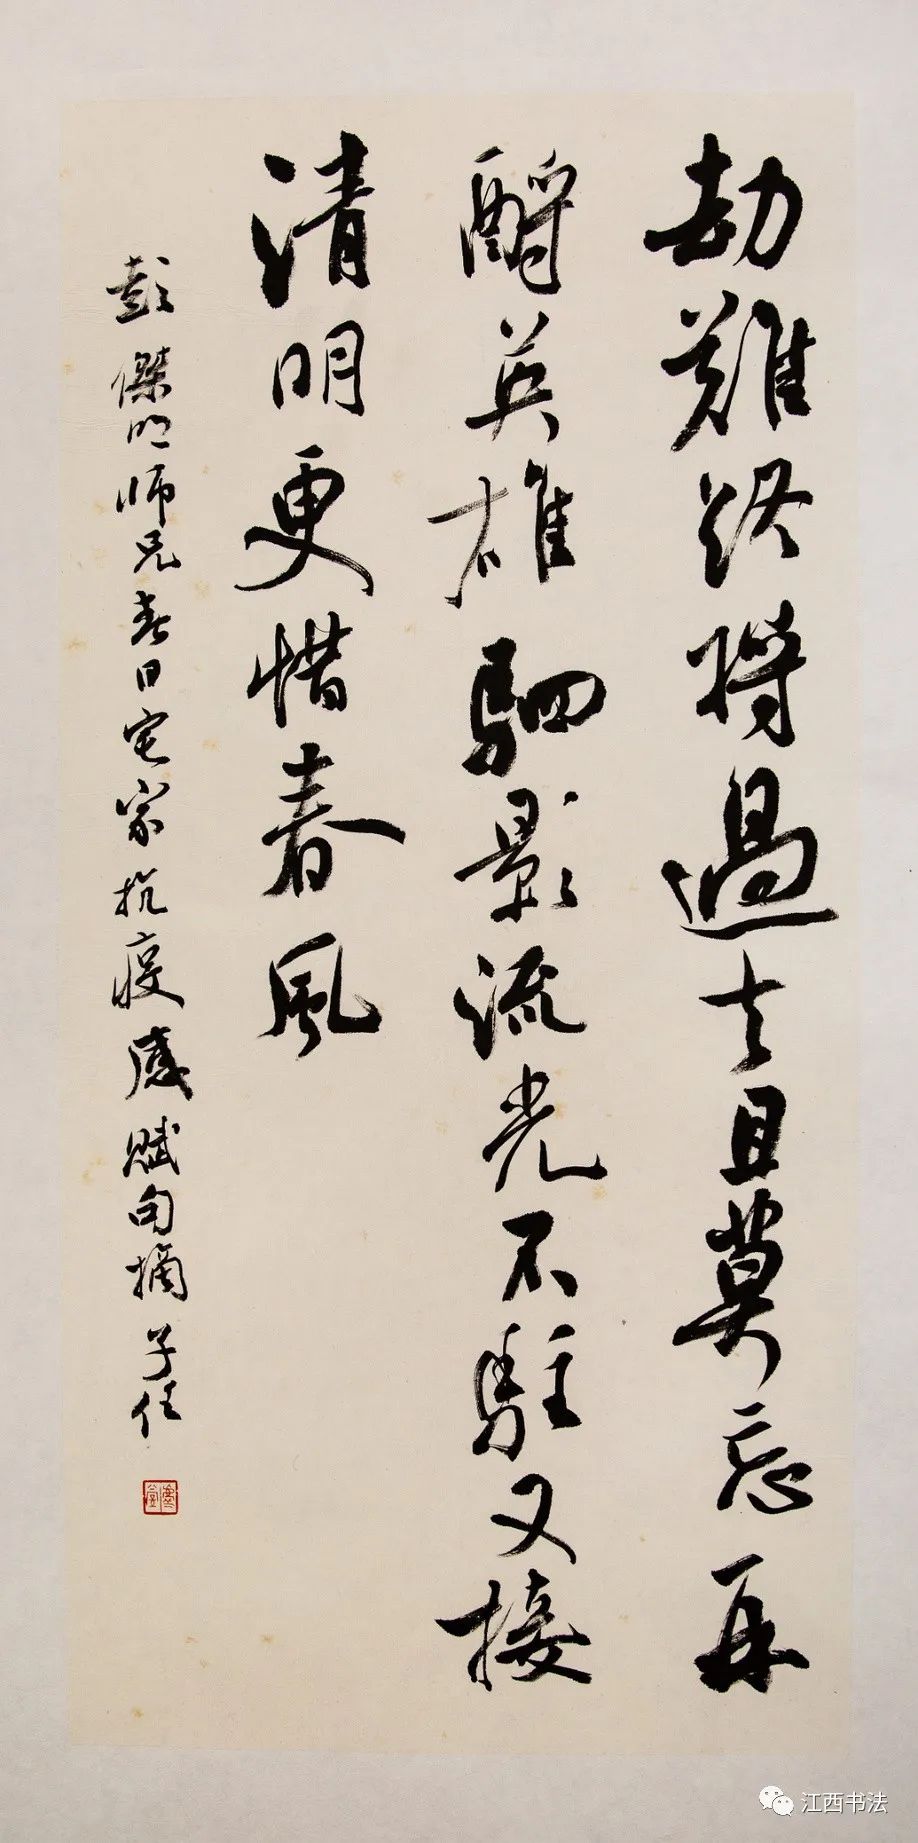 劫難终將過去且莫忘再
酹英雄駟影流光不駐又接
清明更惜春風
彭傑明师兄春日宅家抗疫感賦句摘 子佳
江西书法